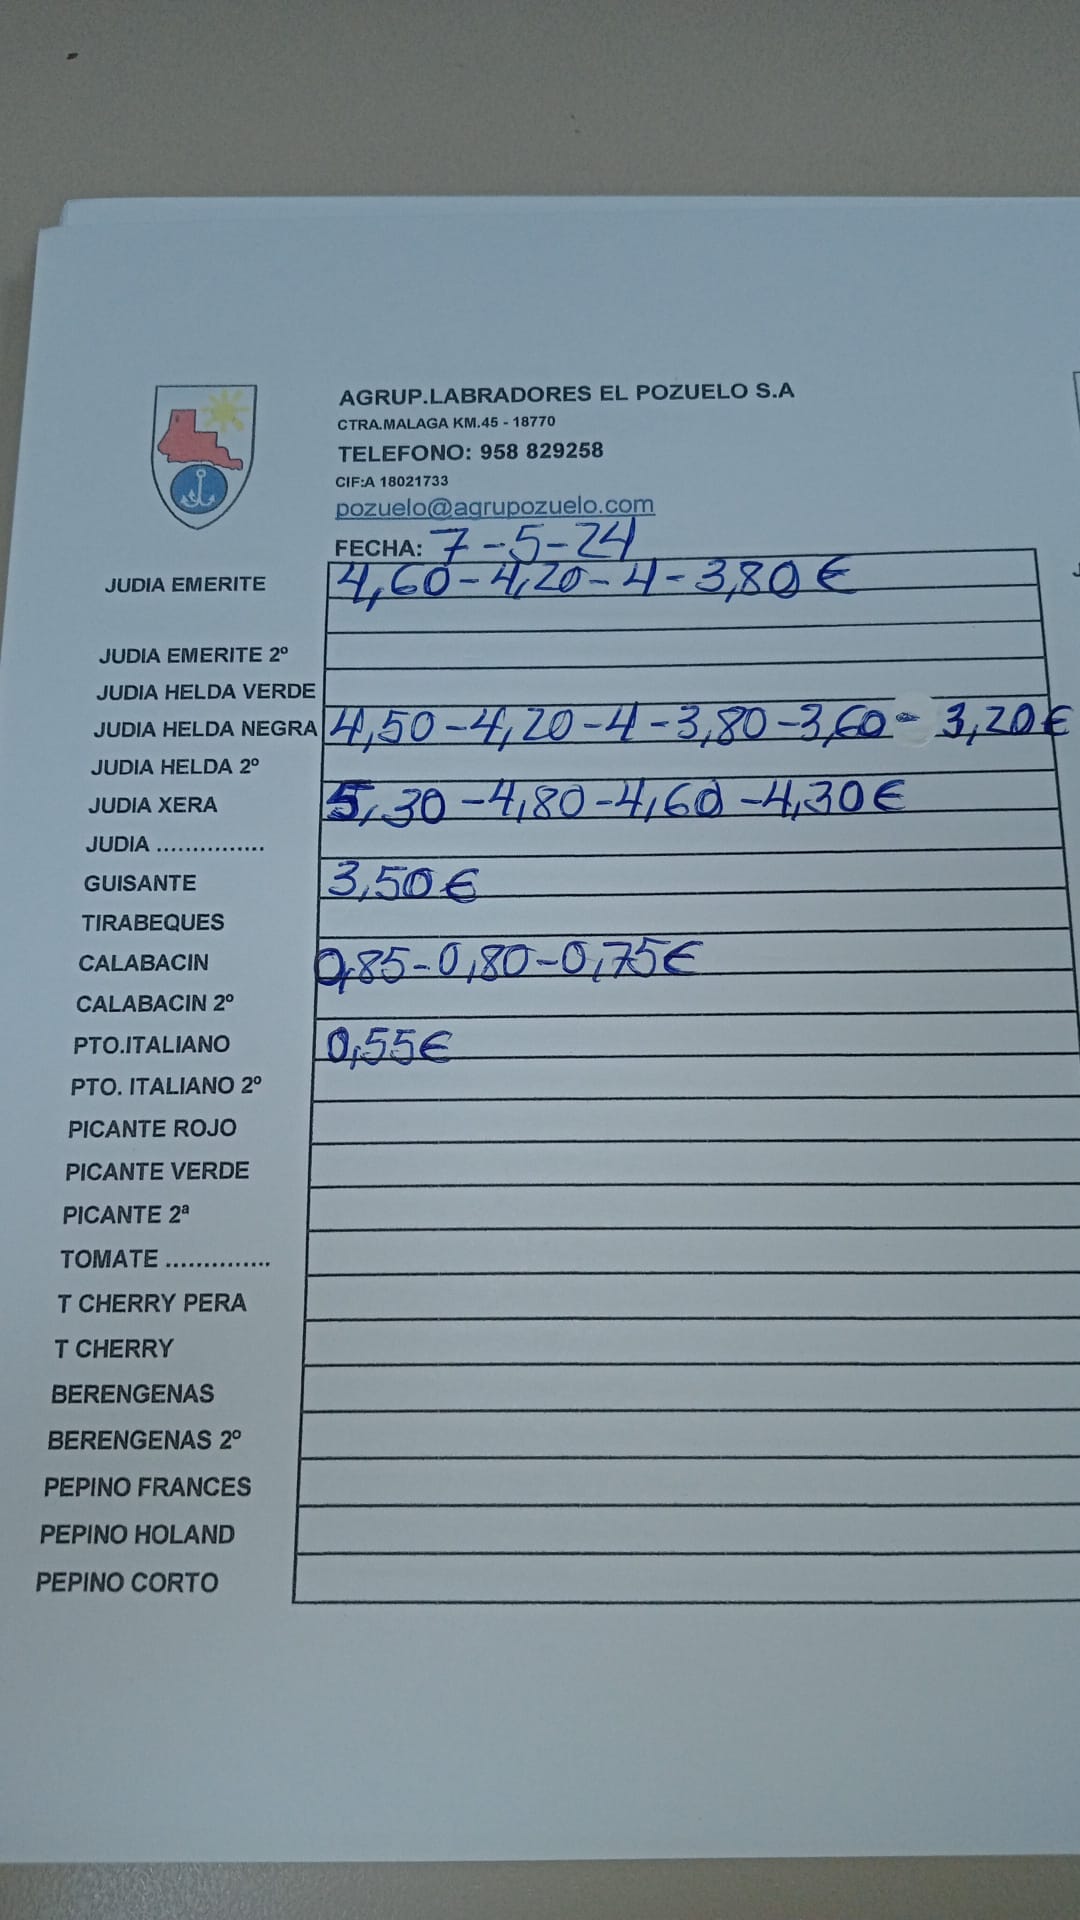 AGRUP.LABRADORES EL POZUELO S.A
CTRA.MALAGA KM.45 - 18770
TELEFONO: 958 829258
CIF:A 18021733
pozuelo@agrupozuelo.com
FECHA: 7-5-24
JUDIA EMERITE 4,60-4,20-4-3,80€
JUDIA EMERITE 2º
JUDIA HELDA VERDE
JUDIA HELDA NEGRA 4,50-4,20-4-3,80-3,60-3,20€
JUDIA HELDA 2º
JUDIA XERA 5,30-4,80-4,60-4,30€
JUDIA ...............
GUISANTE 3,50€
TIRABEQUES
CALABACIN 0,85-0,80-0,75€
CALABACIN 2º
PTO.ITALIANO 0,55€
PTO. ITALIANO 2º
PICANTE ROJO
PICANTE VERDE
PICANTE 2ª
TOMATE ..............
T CHERRY PERA
T CHERRY
BERENGENAS
BERENGENAS 2º
PEPINO FRANCES
PEPINO HOLAND
PEPINO CORTO